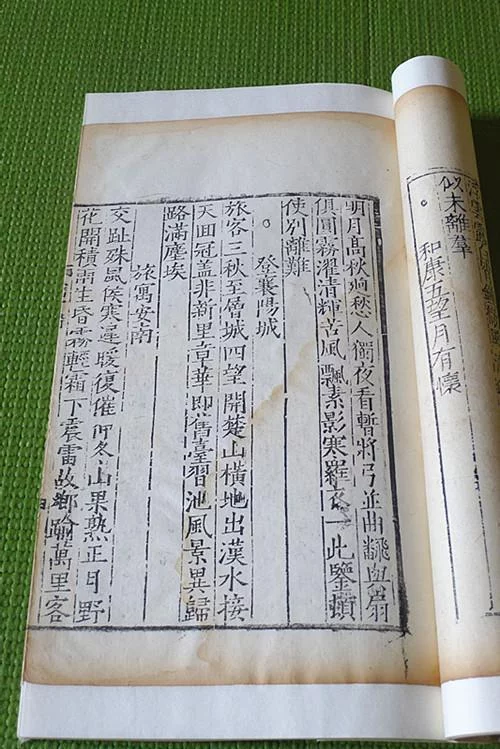 似未離羣
和康五望月有懷
明月髙秋逈愁人獨夜看暫將弓並曲飜與扇
俱圓霧濯清輝苦風飄素影寒羅衣一此鑒頓
使別離難
登襄陽城
旅客三秋至層城四望開楚山橫地出漢水接
天囬冠盖非新里章華即舊臺習池風景異歸
路滿塵埃
旅寓安南
交趾殊風候寒遲暖復催仲冬山果熟正月野
花開積雨生昏霧輕霜下震雷故鄉踰萬里客